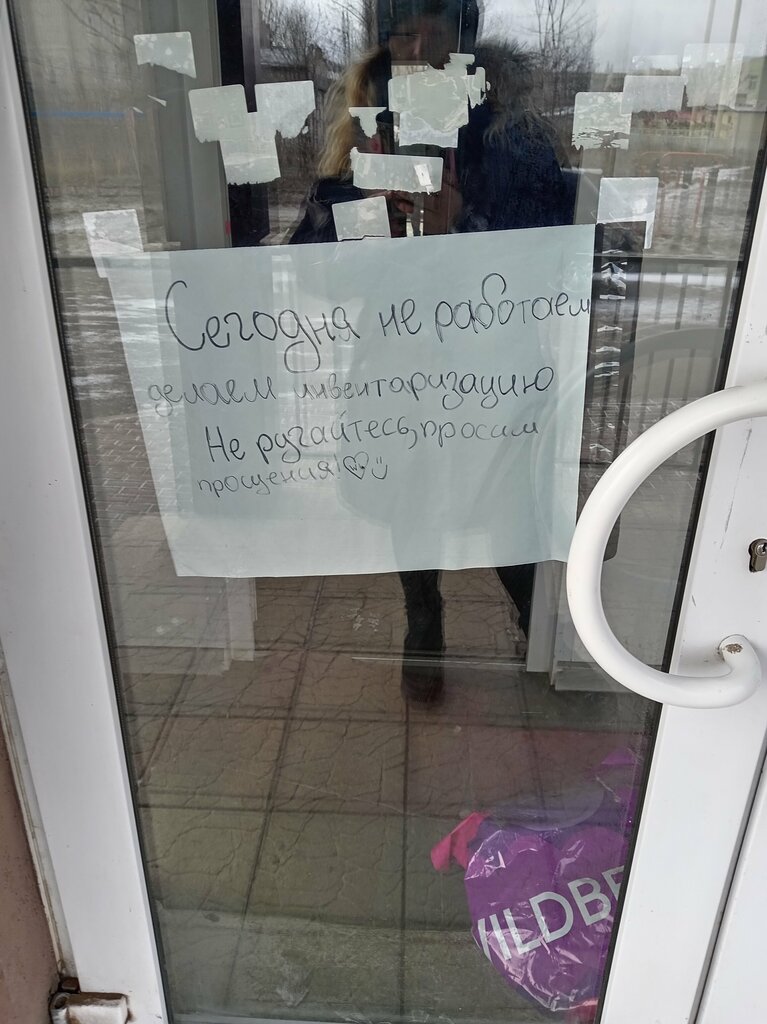 Сегодня не работаем
делаем инвентаризацию
Не ругайтесь, просим
прощения!
WILDBE